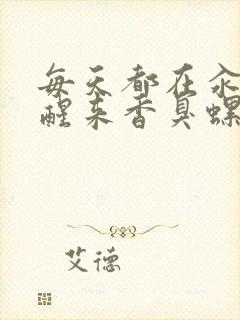 每天都在汆
醒来香臭螺
艾德